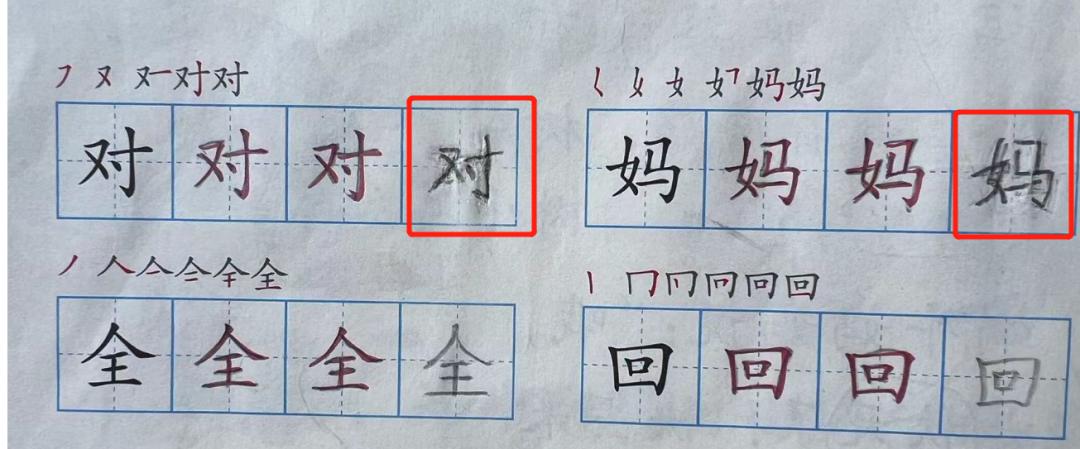 ㇇ 又 又一对对
对 对 对 对
𡿨 女 女 女㇆妈妈
妈 妈 妈 妈
丿 人亼仝全全
全 全 全 全
丨 冂冂冋回回
回 回 回 回